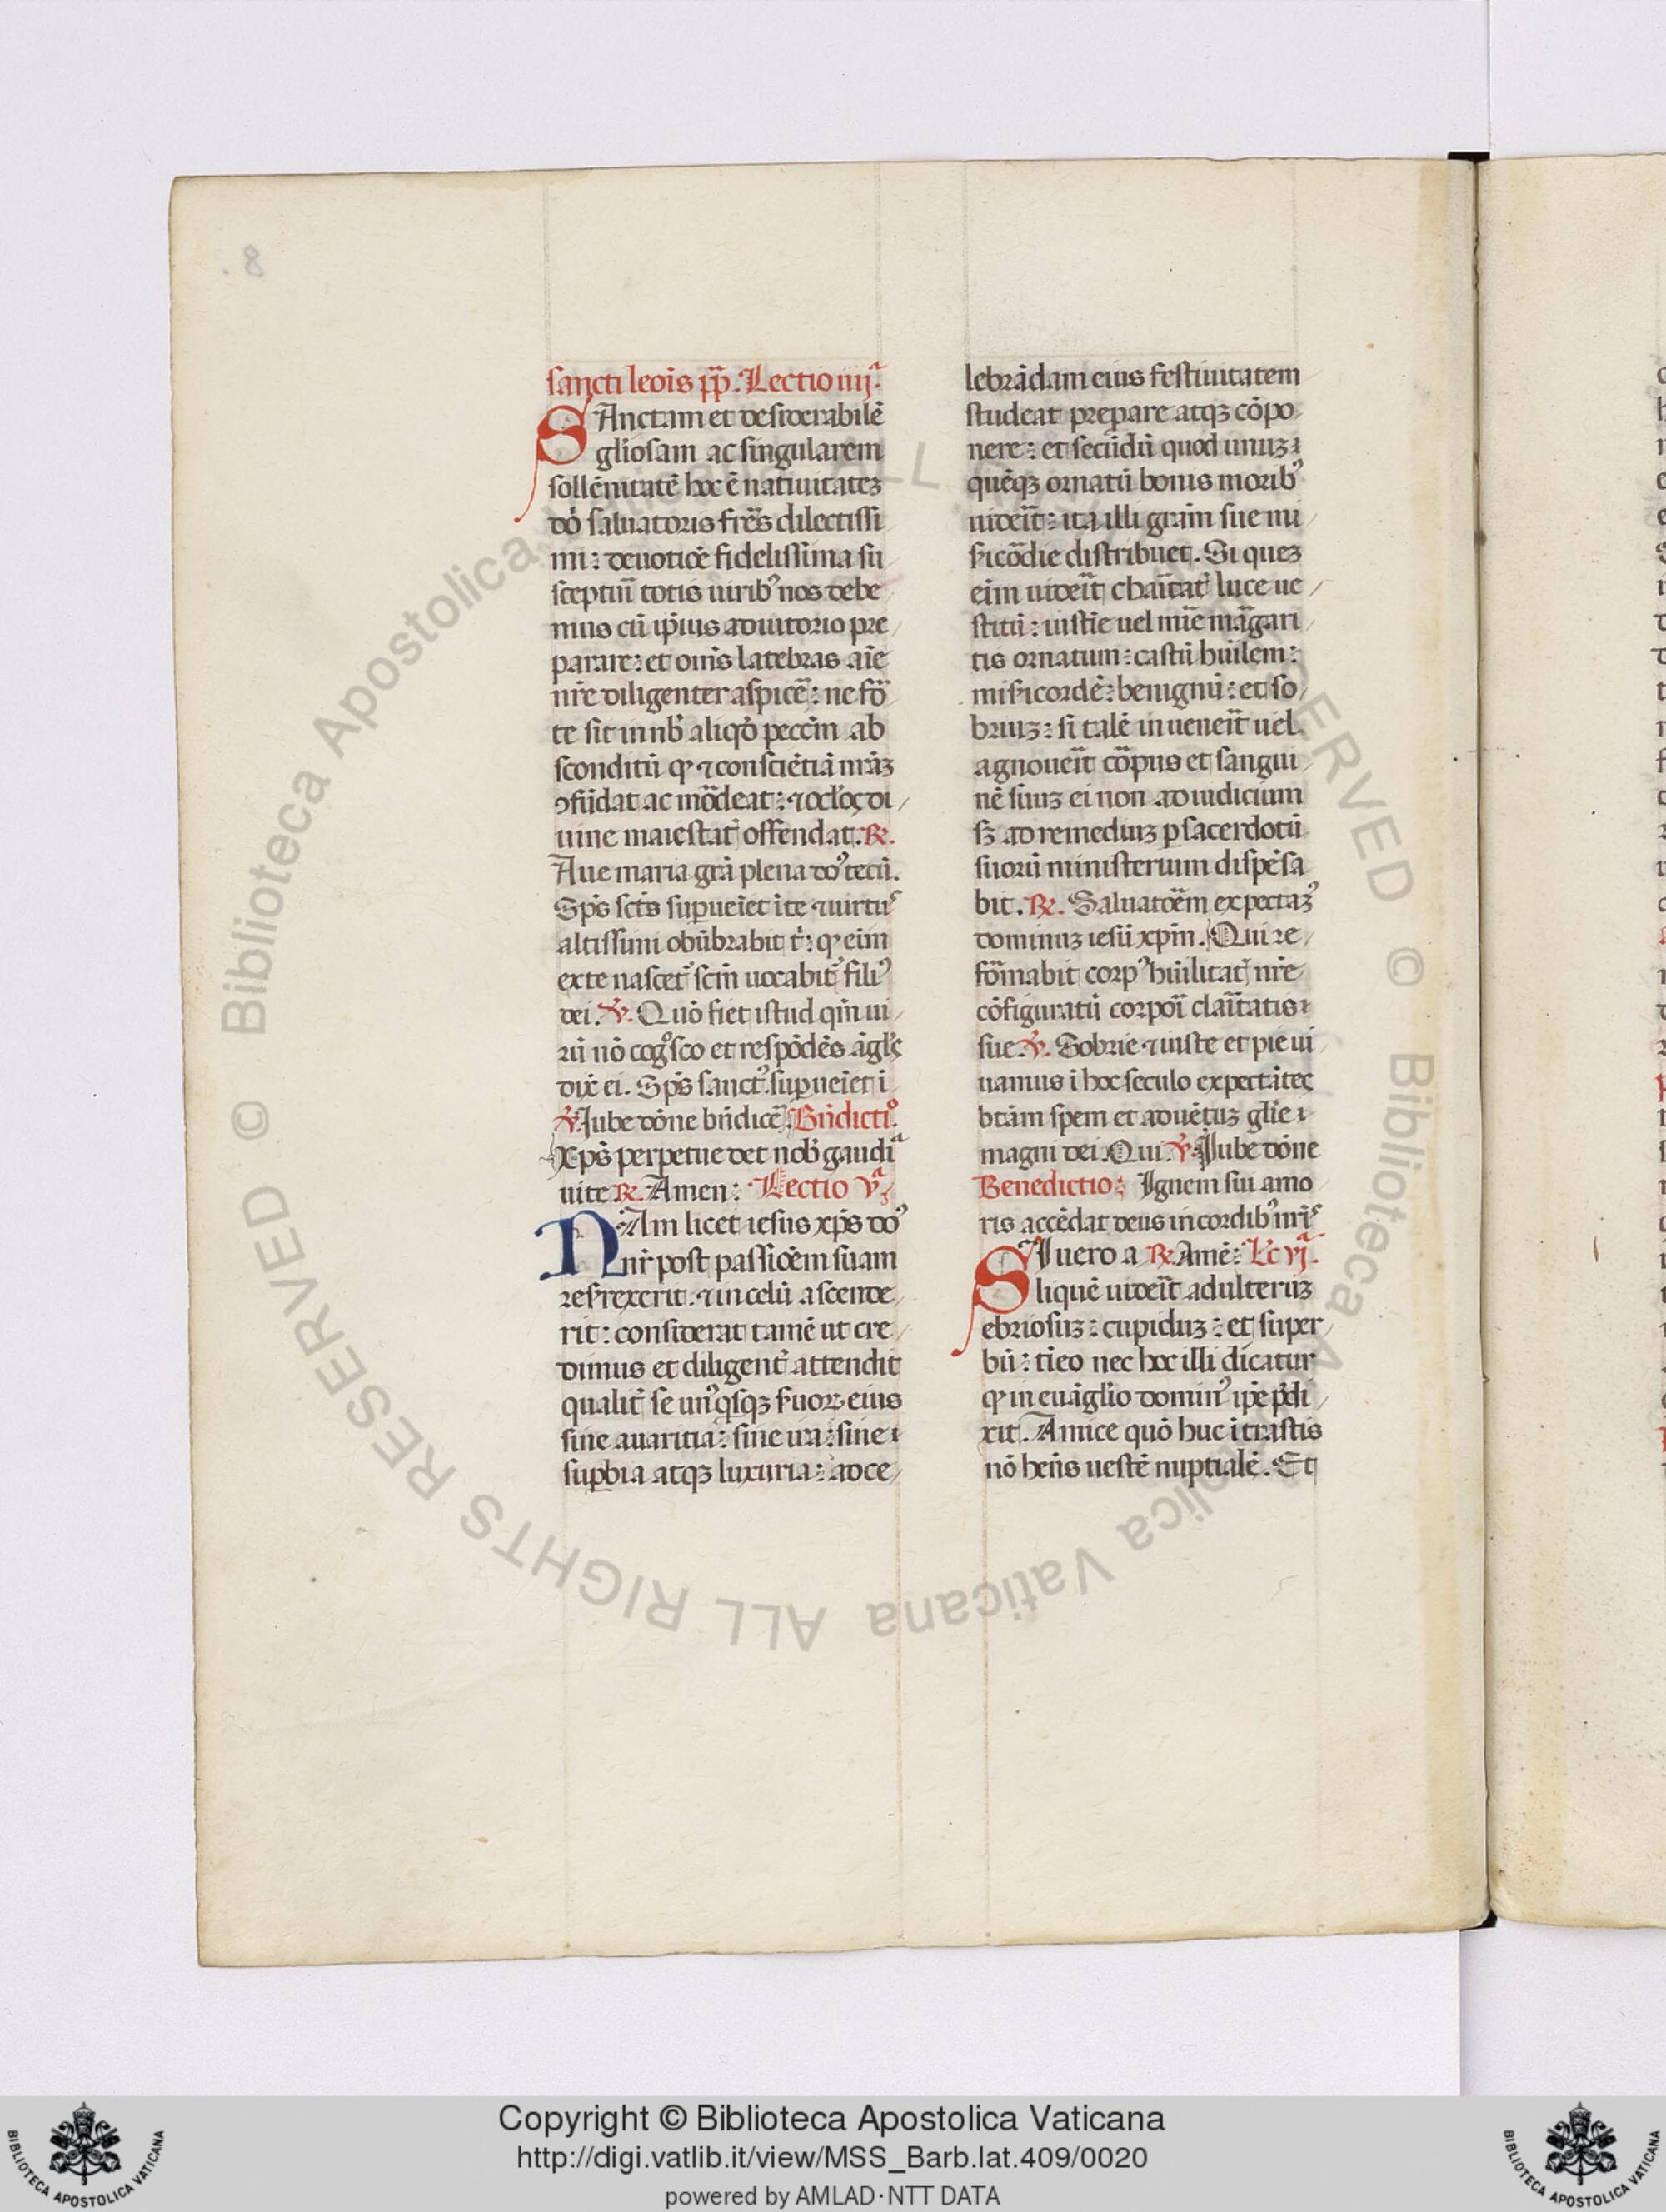 . 8
sancti leōis pp̄. Lectio iiij.ª
SAnctam et desiderabilē
gl̄iosam ac singularem
sollēnitatē hoc ē natiuitatez
dō saluatoris fr̄es dilectissi
mi : deuotiōe fidelissima su
sceptuī totis uirib9 nos debe
mus cū ip̄ius adiutorio pre
parare : et om̄s latebras aīe
nr̄e diligenter aspicē : ne fō
te sit in nb̄ aliqd̄ pecc̄m ab
sconditū qͥ ⁊ consciētiā nr̄az
ɔfūdat ac mōdeat : ⁊ ocl̓os di
uine maiestat̄ offendat. R.
Aue maria grā plena do9 tecū.
Sp̄s sct̄s supueīet īte ⁊ uirtus
altissimi obūbrabit t̄ : qͥ eīm
exte nascet̄ scm̄ uocabit̄ fili9
dei. V. Quō fiet istud qm̄ ui
rū nō cogͦsco et respōdēs āgl̓s
dix̄ ei. Sp̄s sanct9 supueīet ī
V. Jube dōne bn̄dicē. Bn̄dictiͦ.
Xp̄s perpetue det nob̄ gaudiª
uite R. Amen : Lectio vª
NAm licet iesus xp̄s do9
nr̄ post passiōem suam
resr̄rexerit. ⁊ in celū ascende
rit : considerat tamē ut cre
dimus et diligent̄ attendit
qualit̄ se un9qͥsqz s̄uoꝝ eius
sine auaritia : sine ira : sine
supbia atqz luxuria : ad ce
lebrādam eius festiuitatem
studeat prepare atqz cōpo
nere : et secūdū quod unuz
quēqz ornatū bonis morib9
uideīt : ita illi grām sue mi
s̄icōdie distribuet. Si quez
eīm uideīt chaītat̄ luce ue
stitū : iustīe uel mīe māgari
tis ornatum : castū hūilem :
mis̄icordē : benignū : et so
briuz : si talē inueneīt uel
agnoueīt cōpus et sangui
nē suuz ei non ad iudicium
sz ad remediuz p sacerdotū
suorū ministerium dispēsa
bit. R. Saluatōem expectaz9
dominuz iesū xp̄m. Qui re
fōmabit corp9 hūilitat̄ nr̄e
cōfiguratū corpoī claītatis
sue. V. Sobrie ⁊ iuste et pie ui
uamus ī hoc seculo expectātes
btām spem et aduētuz glīe
magni dei. Qui. V. Jube dōne
Benedictio : Ignem sui amo
ris accēdat deus in cordib9 nrīs
R. Amē : Lc̄ vj.ª
SI uero a
liquē uideīt adulteruz
ebriosuz : cupiduz : et super
bū : tīeo nec hoc illi dicatur
qͥ in euāgl̓io domin9 ip̄e p̄di
xit. Amice quō huc ītrastis
nō hen̄s uestē nuptialē. Et
Copyright © Biblioteca Apostolica Vaticana
http://digi.vatlib.it/view/MSS_Barb.lat.409/0020
powered by AMLAD·NTT DATA
BIBLIOTECA APOSTOLICA VATICANA
BIBLIOTECA APOSTOLICA VATICANA